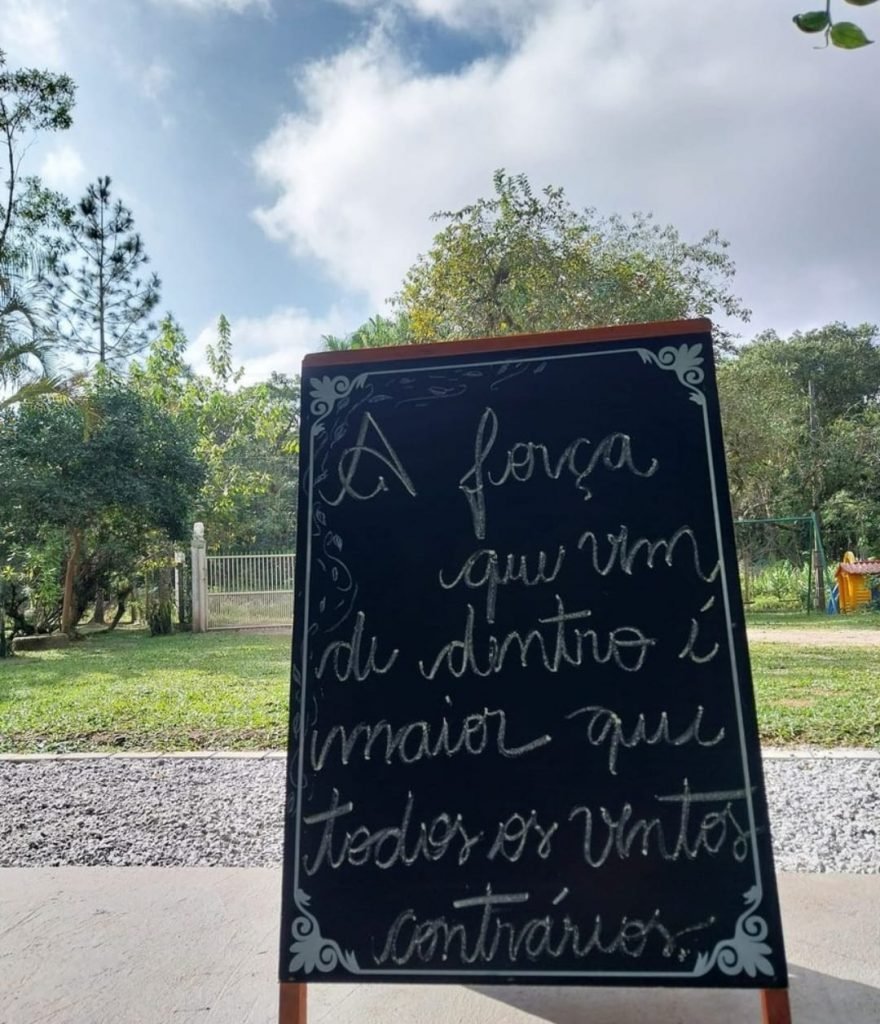 A força
que vem
de dentro é
maior que
todos os ventos
contrários.